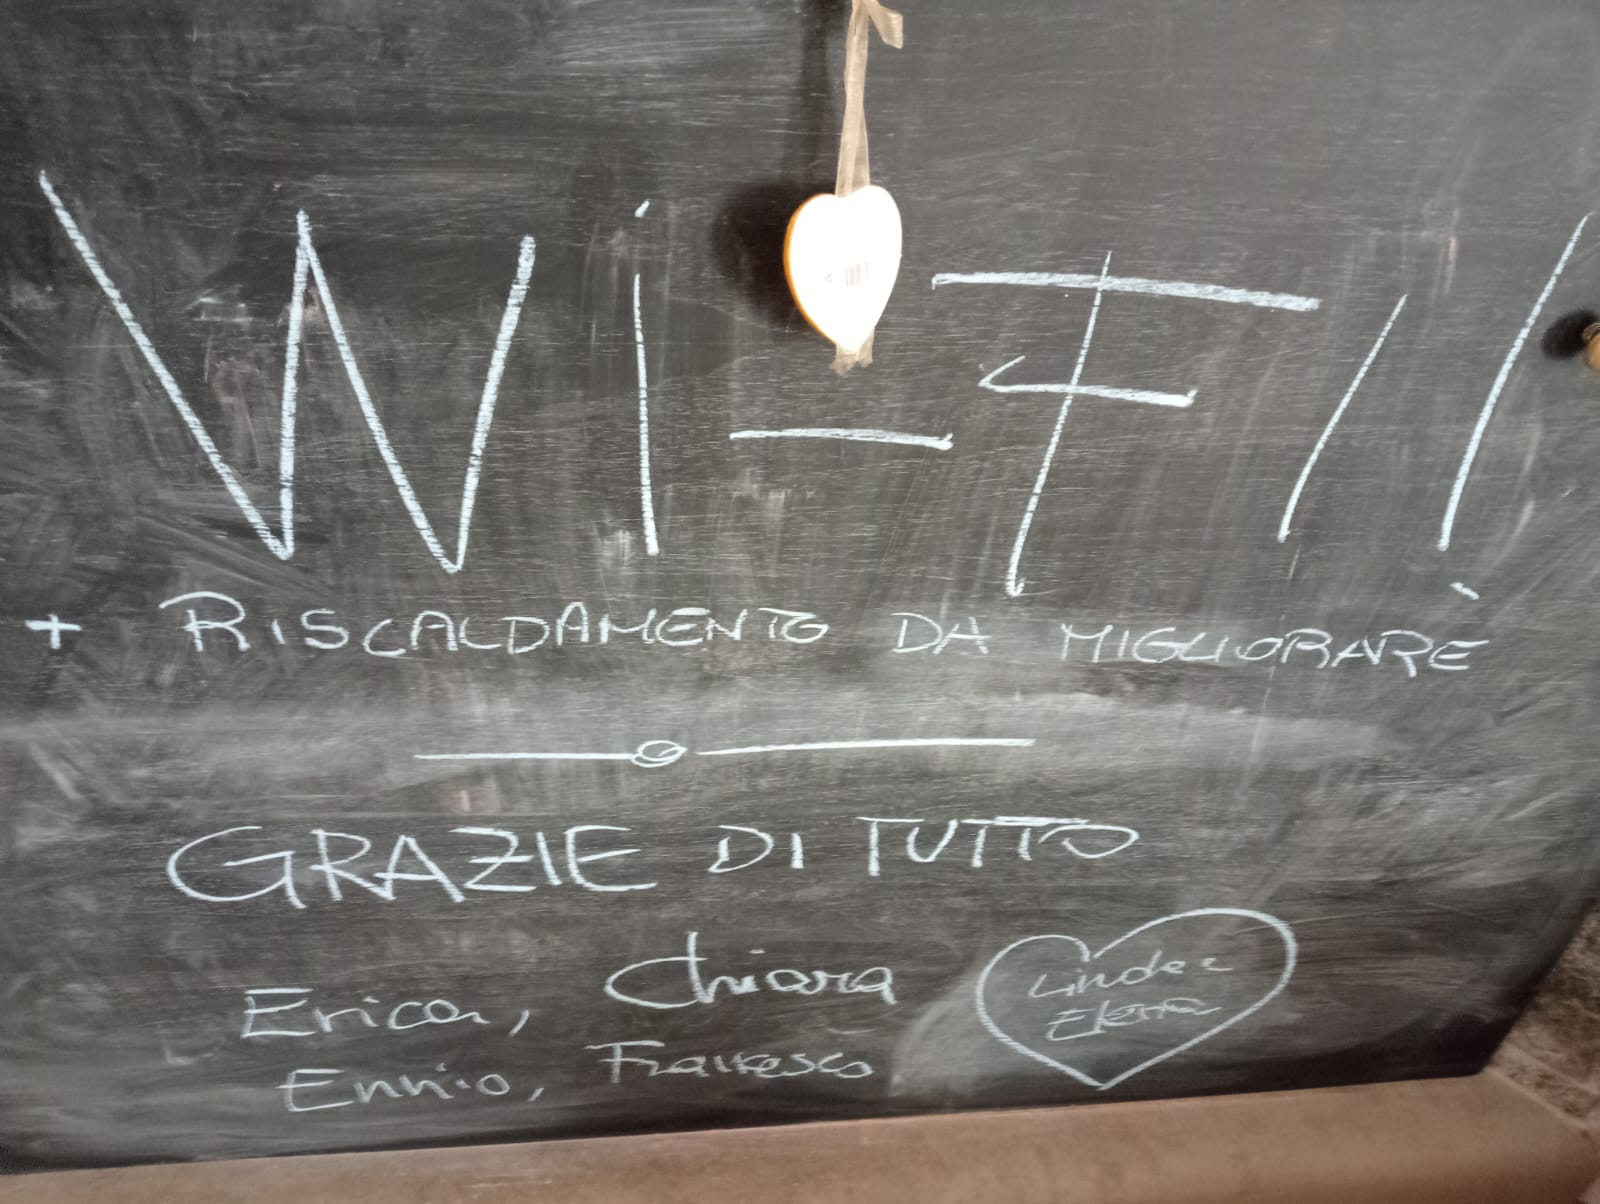 Wi-FI!
+ RISCALDAMENTO DA MIGLIORARE
GRAZIE DI TUTTO
Erica, Chiara
Ennio, Francesco
Linda e
Elena